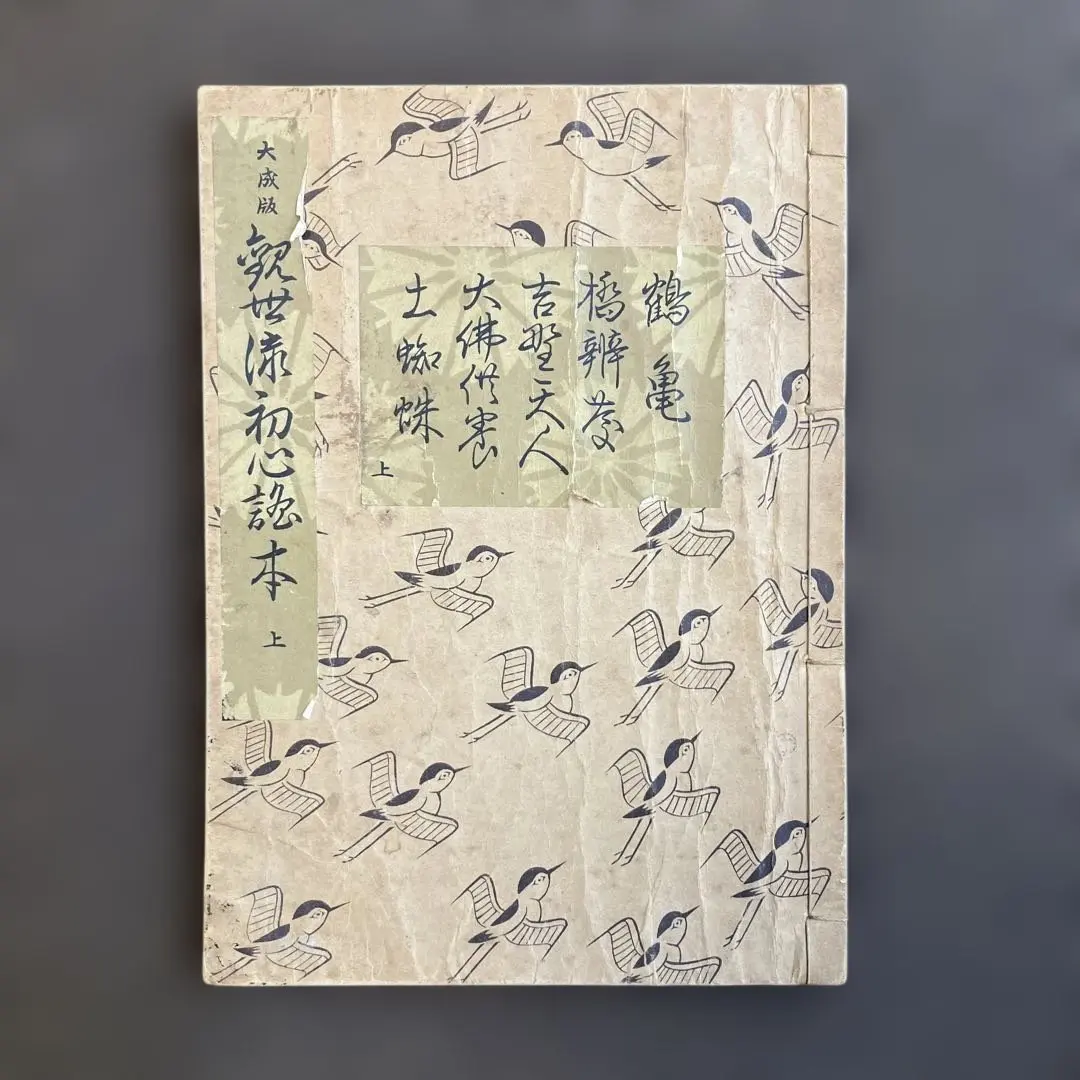 鶴亀
橋辨慶
吉野天人
大佛供養
土蜘蛛
上
大成版
觀世流初心謠本
上